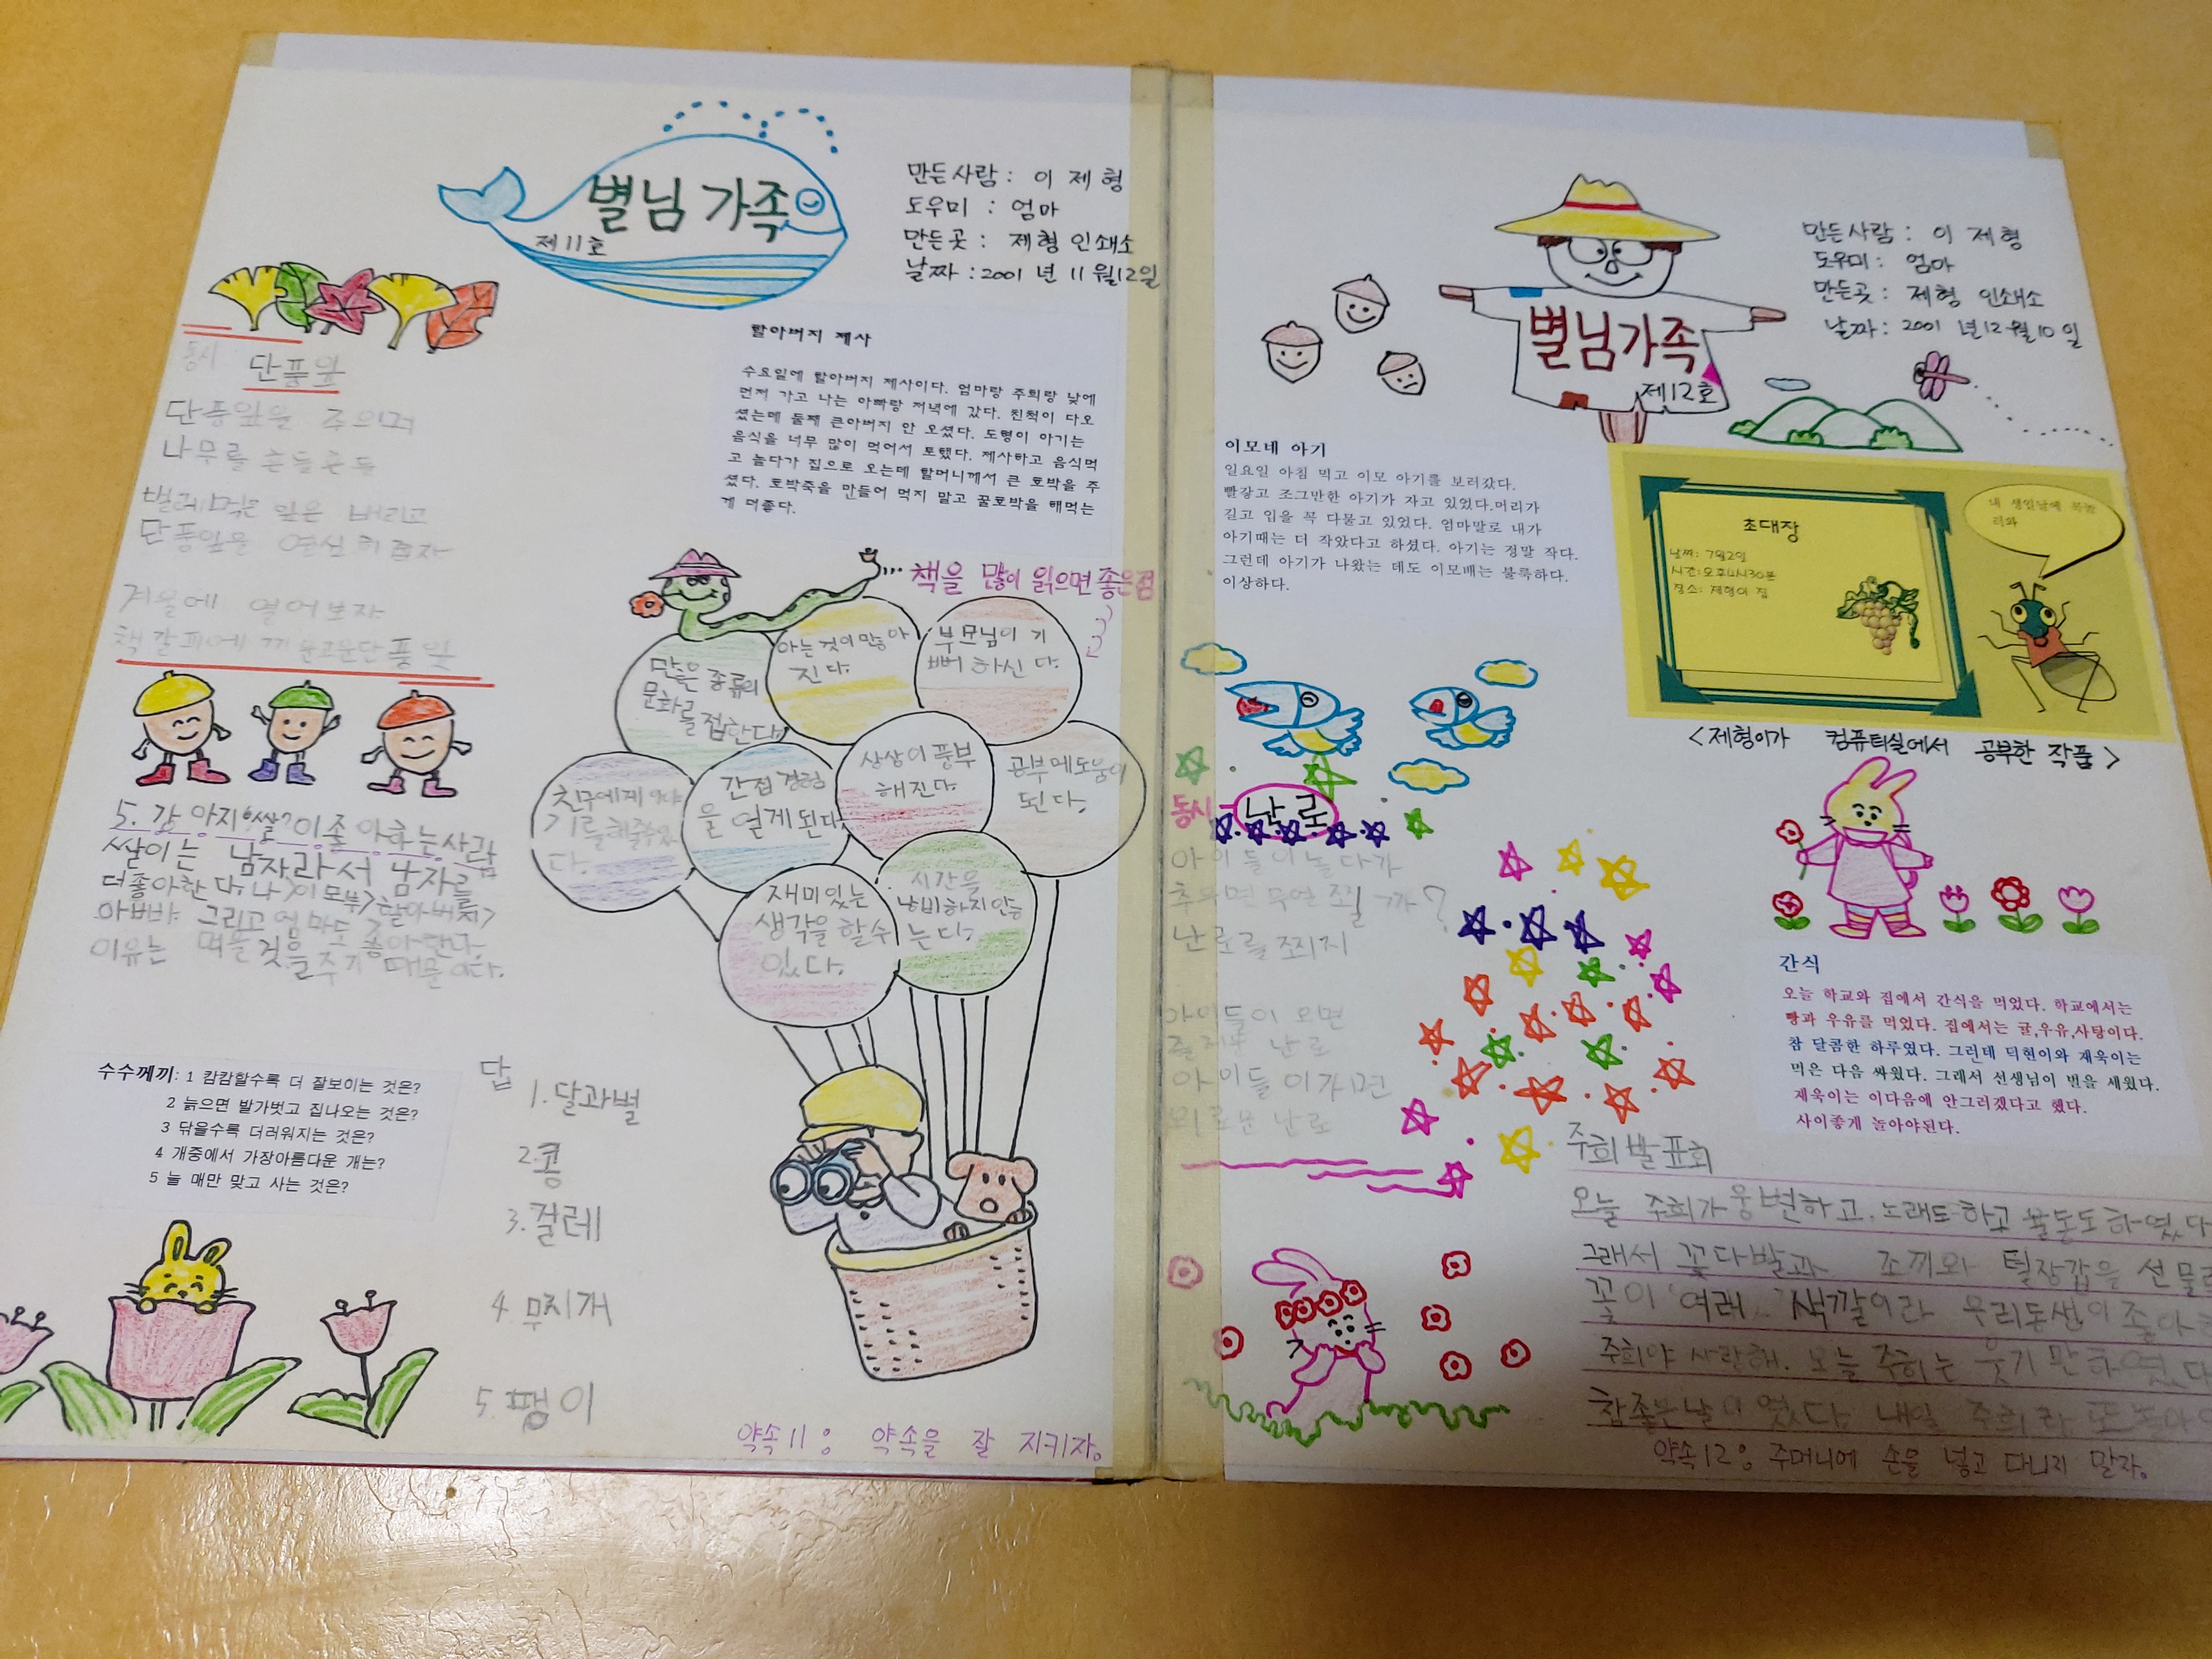 별님 가족
제11호
만든사람 : 이 제 형
도우미 : 엄마
만든곳 : 제형 인쇄소
날짜 : 2001 년 11 월12일
동시
단풍잎
단풍잎을 주으며
나무를 흔들흔들
벌레먹은 잎은 버리고
단풍잎을
겨울에 열어보자
책갈피에
할아버지 제사
수요일에 할아버지 제사이다. 엄마랑 주희랑 낮에
먼저 가고 나는 아빠랑 저녁에 갔다. 친척이 다오
셨는데 둘째 큰아버지 안 오셨다. 도형이 아기는
음식을 너무 많이 먹어서 토했다. 제사하고 음식먹
고 놀다가 집으로 오는데 할머니께서 큰 호박을 주
셨다. 호박죽을 만들어 먹지 말고 꿀호박을 해먹는
게 더좋다.
책을 많이 읽으면 좋은점
많은 종류의
문화를
접한다.
아는 것이 많아
진다.
부모님이 기
뻐 하신 다.
친구에게 이야
기를 해줄수있
다.
간접 경험
을 얻게 된다.
상상이 풍부
해진다.
공부에 도움이
된다.
재미있는
생각을 할 수
있다.
시간을
낭비하지 않
는다.
5. 강아지'쌀'이 좋아하는 사람
쌀이는 남자라서 남자를
더좋아한다. 나>이모부>할아버지>
아빠 그리고 엄마도 좋아한다.
이유는 먹을 것을 주기 때문이다.
수수께끼: 1 캄캄할수록 더 잘보이는 것은?
2 늙으면 발가벗고 집나오는 것은?
3 닦을수록 더러워지는 것은?
4 개중에서 가장아름다운 개는?
5 늘 매만 맞고 사는 것은?
답
1. 달과별
2. 콩
3. 걸레
4. 무지개
5. 팽이
약속 11 : 약속을 잘 지키자.
별님가족
제12호
만든사람 : 이 제형
도우미 : 엄마
만든곳 : 제형 인쇄소
날짜 : 2001 년12월10일
이모네 아기
일요일 아침 먹고 이모 아기를 보러갔다.
빨갛고 조그만한 아기가 자고 있었다.머리가
길고 입을 꼭 다물고 있었다. 엄마말로 내가
아기때는 더 작았다고 하셨다. 아기는 정말 작다.
그런데 아기가 나왔는 데도 이모배는 불룩하다.
이상하다.
초대장
날짜: 7월2일
시간:오후4시30분
장소: 제형이 집
내 생일날에
<제형이가 컴퓨터실에서 공부한 작품>
동시
난로
아이들이 놀다가
추우면 무얼 찔까?
난로를 쬐지
아이들이 오면
즐거운 난로
아이들이가면
외로운 난로
간식
오늘 학교와 집에서 간식을 먹었다. 학교에서는
빵과 우유를 먹었다. 집에서는 귤,우유,사탕이다.
참 달콤한 하루였다. 그런데 덕현이와 재욱이는
먹은 다음 싸웠다. 그래서 선생님이 벌을 세웠다.
재욱이는 이다음에 안그러겠다고 했다.
사이좋게 놀아야된다.
주희 발표회
오늘 주희가 웅변하고, 노래도 하고 율동도 하였다
그래서 꽃다발과 조끼와 털장갑을 선물
꽃이 여러 색깔이라 우리동생이 좋아
주희야 사랑해. 오늘 주희는 웃기 만 하였다
참좋은날이 였다. 내일 주희랑 또 놀아
약속12 : 주머니에 손을 넣고 다니지 말자.